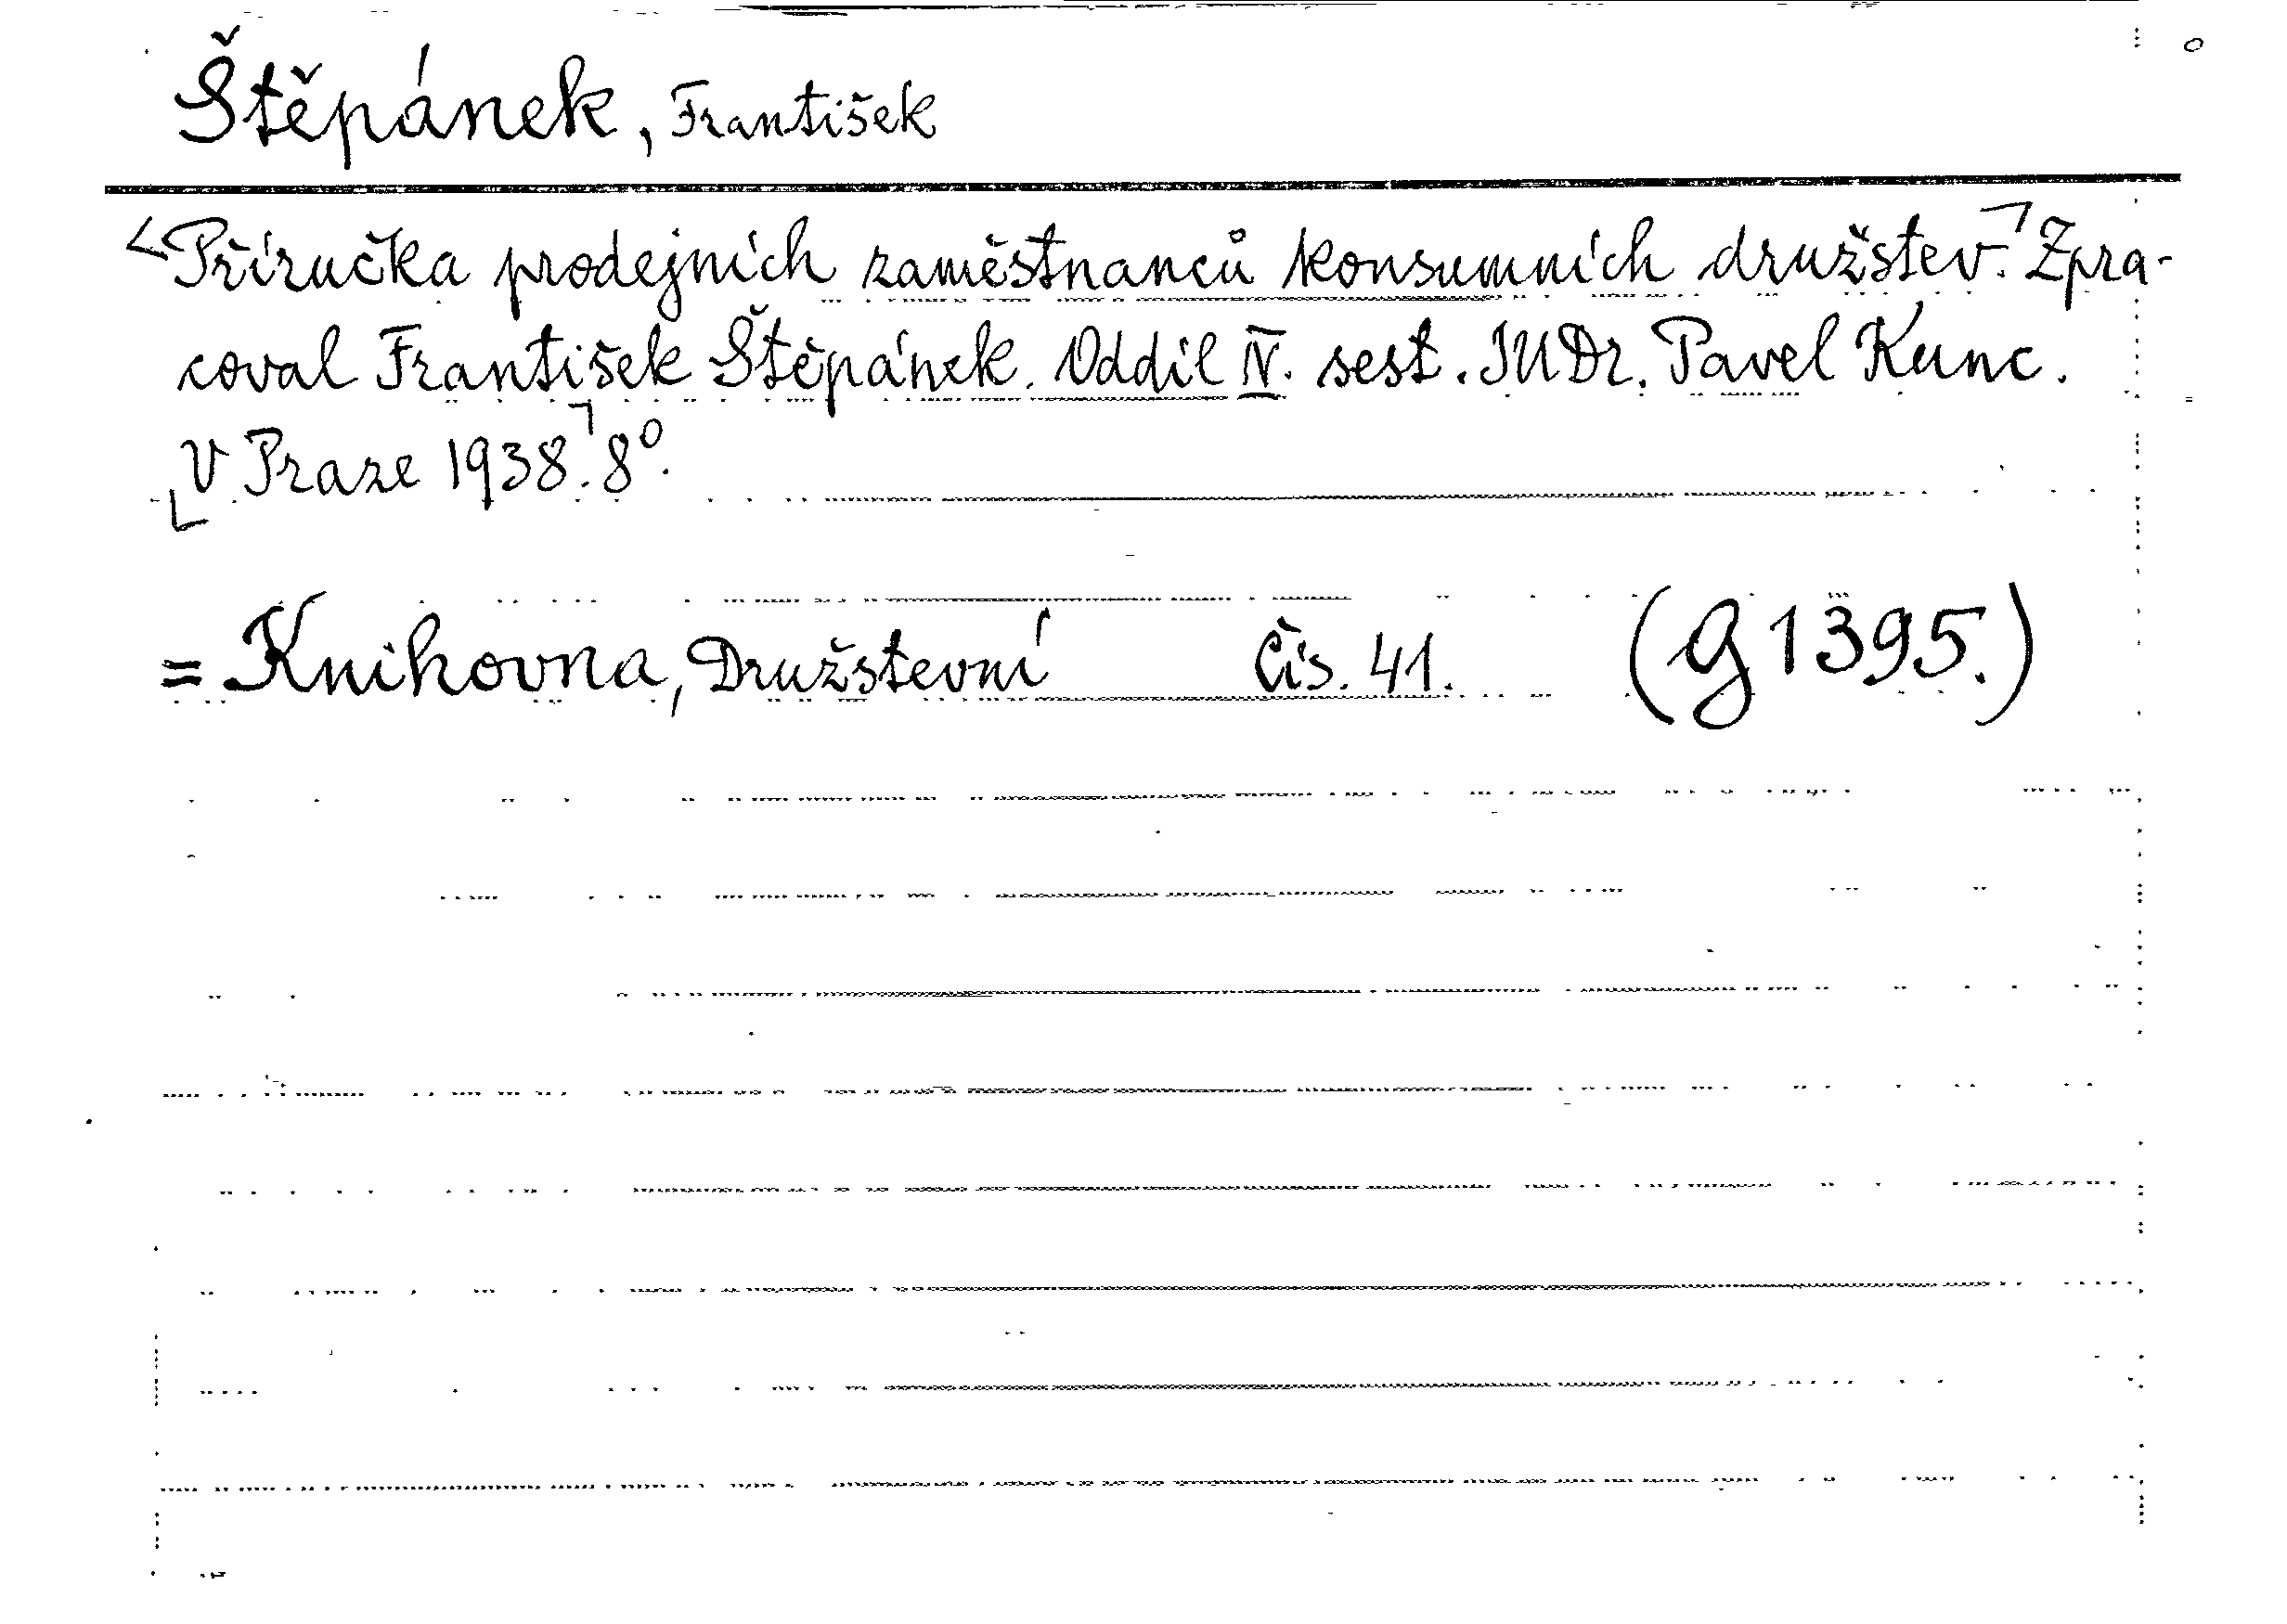 Štěpánek, František
Příručka prodejních zaměstnanců konsumních družstev. Zpra-
coval František Štěpánek. Oddíl IV. sest. JUDr. Pavel Kunc.
V Praze 1938. 8°.
= Knihovna, Družstevní Čís. 41. (G 1395.)